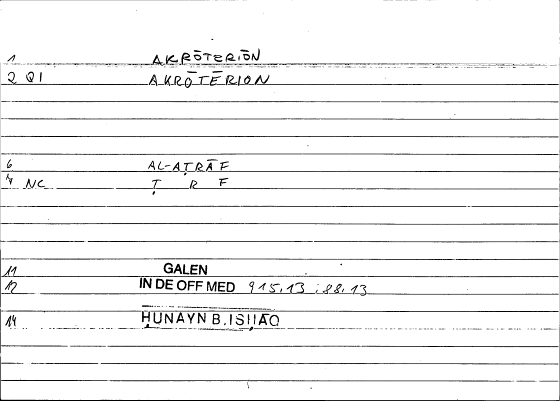 1 AKRŌTERIŌN
2 QI AKRŌTĒRION
6 AL-AṬRĀF
7 NC Ṭ R F
11 GALEN
12 IN DE OFF MED 915,13 : 88,13
14 ḤUNAYN B. ISḤĀQ